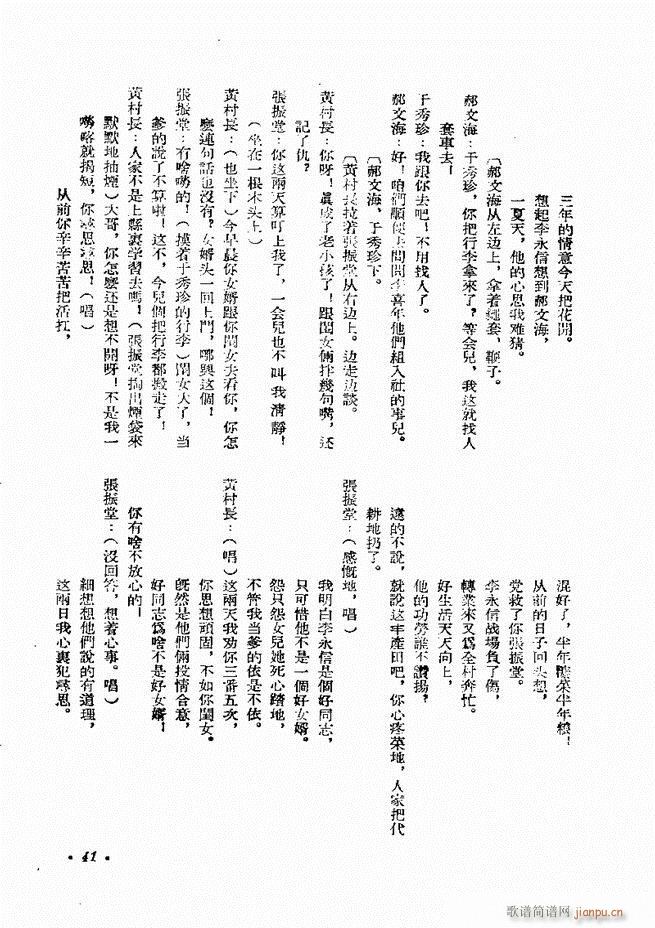 三年的情意今天把花開。
想起李永信想到郝文海，
一夏天，他的心思我难猜。
〔郝文海从左边上，拿着繩套、鞭子。
郝文海：于秀珍，你把行李拿來了？等会兒，我这就找人
套車去！
于秀珍：我跟你去吧！不用找人了。
郝文海：好！咱們順便上問問李喜年他們組入社的事兒。
〔郝文海、于秀珍下。
〔黃村長拉着張振堂从右边上。边走边談。
黃村長：你呀！眞成了老小孩了！跟閨女倆拌幾句嘴，还
記了仇？
張振堂：你这兩天算叮上我了，一会兒也不叫我清靜！
（坐在一根木头上）
黃村長：（也坐下）今早晨你女婿跟你閨女去看你，你怎
麽連句話也沒有？女婿头一回上門，哪興这個！
張振堂：有啥嘮的！（摸着于秀珍的行李）閨女大了，当
爹的說了不算啦！这不，今兒個把行李都搬走了！
黃村長：人家不是上縣裏学習去嗎！（張振堂掏出煙袋來
默默地抽煙）大哥，你怎麽还是想不開呀！不是我一
嘮咯就揭短，你尋思尋思！（唱）
从前你辛辛苦苦把活扛，
混好了，半年糠菜半年糧！
从前的日子回头想，
党救了你張振堂。
李永信战場負了傷，
轉業來又爲全村奔忙。
好生活天天向上，
他的功勞誰不讚揚？
遠的不說，就說这丰產田吧，你心疼菜地，人家把代
耕地扔了。
張振堂：（感慨地，唱）
我明白李永信是個好同志，
只可惜他不是一個好女婿。
怨只怨女兒她死心踏地，
不管我当爹的依是不依。
黃村長：（唱）这兩天我劝你三番五次，
你思想頑固，不如你閨女。
旣然是他們倆投情合意，
好同志爲啥不是好女婿！
你有啥不放心的！
張振堂：（沒回答，想着心事。唱）
細想想他們說的有道理，
这兩日我心裏犯尋思。
·41·
歌谱简谱网
jianpu.cn